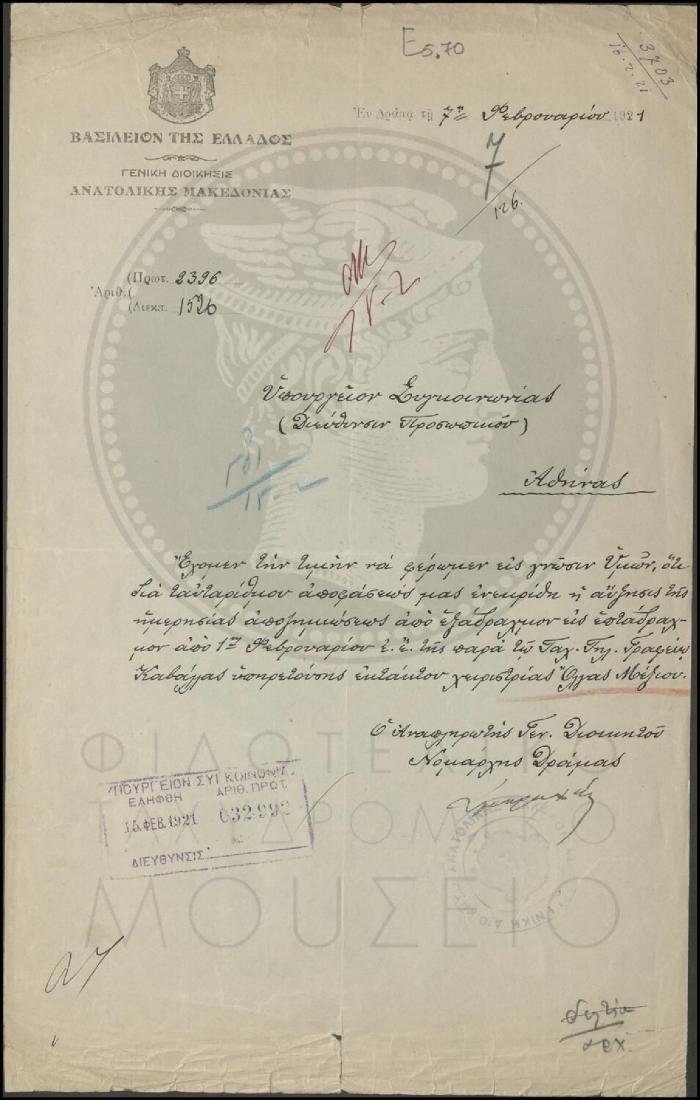 Ε5.70
3703
16.2.21
ΒΑΣΙΛΕΙΟΝ ΤΗΣ ΕΛΛΑΔΟΣ
ΓΕΝΙΚΗ ΔΙΟΙΚΗΣΙΣ
ΑΝΑΤΟΛΙΚΗΣ ΜΑΚΕΔΟΝΙΑΣ
Ἐν Δράμᾳ τῇ 7ῃ Φεβρουαρίου 1921
7
126.
Ἀριθ.
(Πρωτ. 2396
(Διεκπ. 1526
15-2
Ὑπουργεῖον Συγκοινωνίας
(Διεύθυνσιν Προσωπικοῦ)
15-2
Ἀθήνας
Ἔχομεν τὴν τιμὴν νὰ φέρωμεν εἰς γνῶσιν Ὑμῶν, ὅτι
διὰ ταὐταρίθμου ἀποφάσεώς μας ἐνεκρίθη ἡ αὔξησις τῆς
ἡμερησίας ἀποζημιώσεως ἀπὸ ἑξάδραχμον εἰς ἑπτάδραχ-
μον ἀπὸ 1ης Φεβρουαρίου ἐ. ἔ. τῆς παρὰ τῷ Ταχ. Τηλ. Γραφείῳ
Καβάλλας ὑπηρετούσης ἐκτάκτου χειριστρίας Ὄλγας Μέξιου.
Ὁ Ἀναπληρωτὴς Γεν. Διοικητοῦ
Νομάρχης Δράμας
ΥΠΟΥΡΓΕΙΟΝ ΣΥΓΚΟΙΝΩΝΙΑΣ
ΕΛΗΦΘΗ ΑΡΙΘ. ΠΡΩΤ.
15 ΦΕΒ. 1921 032992
ΔΙΕΥΘΥΝΣΙΣ
ΦΙΛΟΤΕΛΙΚΟ
ΤΑΧΥΔΡΟΜΙΚΟ
ΜΟΥΣΕΙΟ